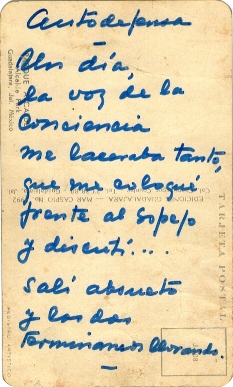 Autodefensa
Un día,
la voz de la
Conciencia
me laceraba tanto,
que me coloqué
frente al espejo
y discutí....
Salí absuelto
y los dos
terminamos llorando.
TARJETA POSTAL
EDICIONES GUADALAJARA — MAR CASPIO No.
Guadalajara, Jal. México